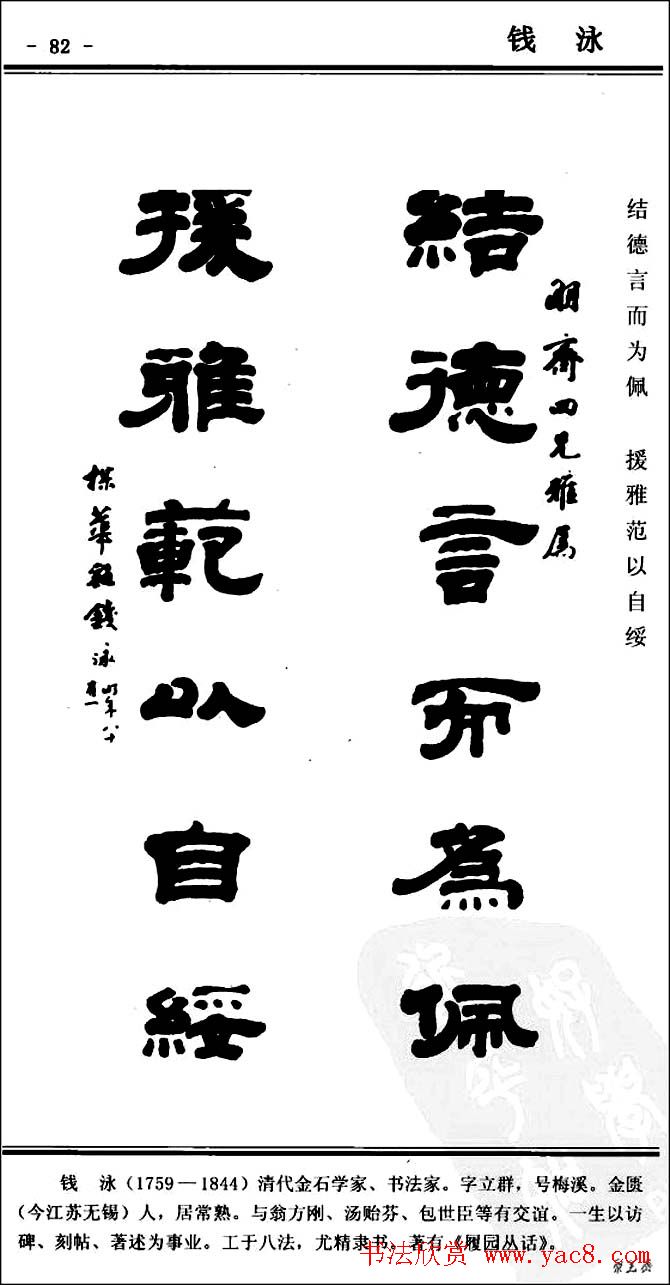 - 82 -
钱 泳
结德言而为佩 援雅范以自绥
朙齋四兄雅属
結德言而為佩
援雅範以自綏
楳華谿錢泳
时年八十
有一
钱 泳(1759—1844)清代金石学家、书法家。字立群,号梅溪。金匮
(今江苏无锡)人,居常熟。与翁方刚、汤贻芬、包世臣等有交谊。一生以访
碑、刻帖、著述为事业。工于八法,尤精隶书。著有《履园丛话》。
书法欣赏 www.yac8.com